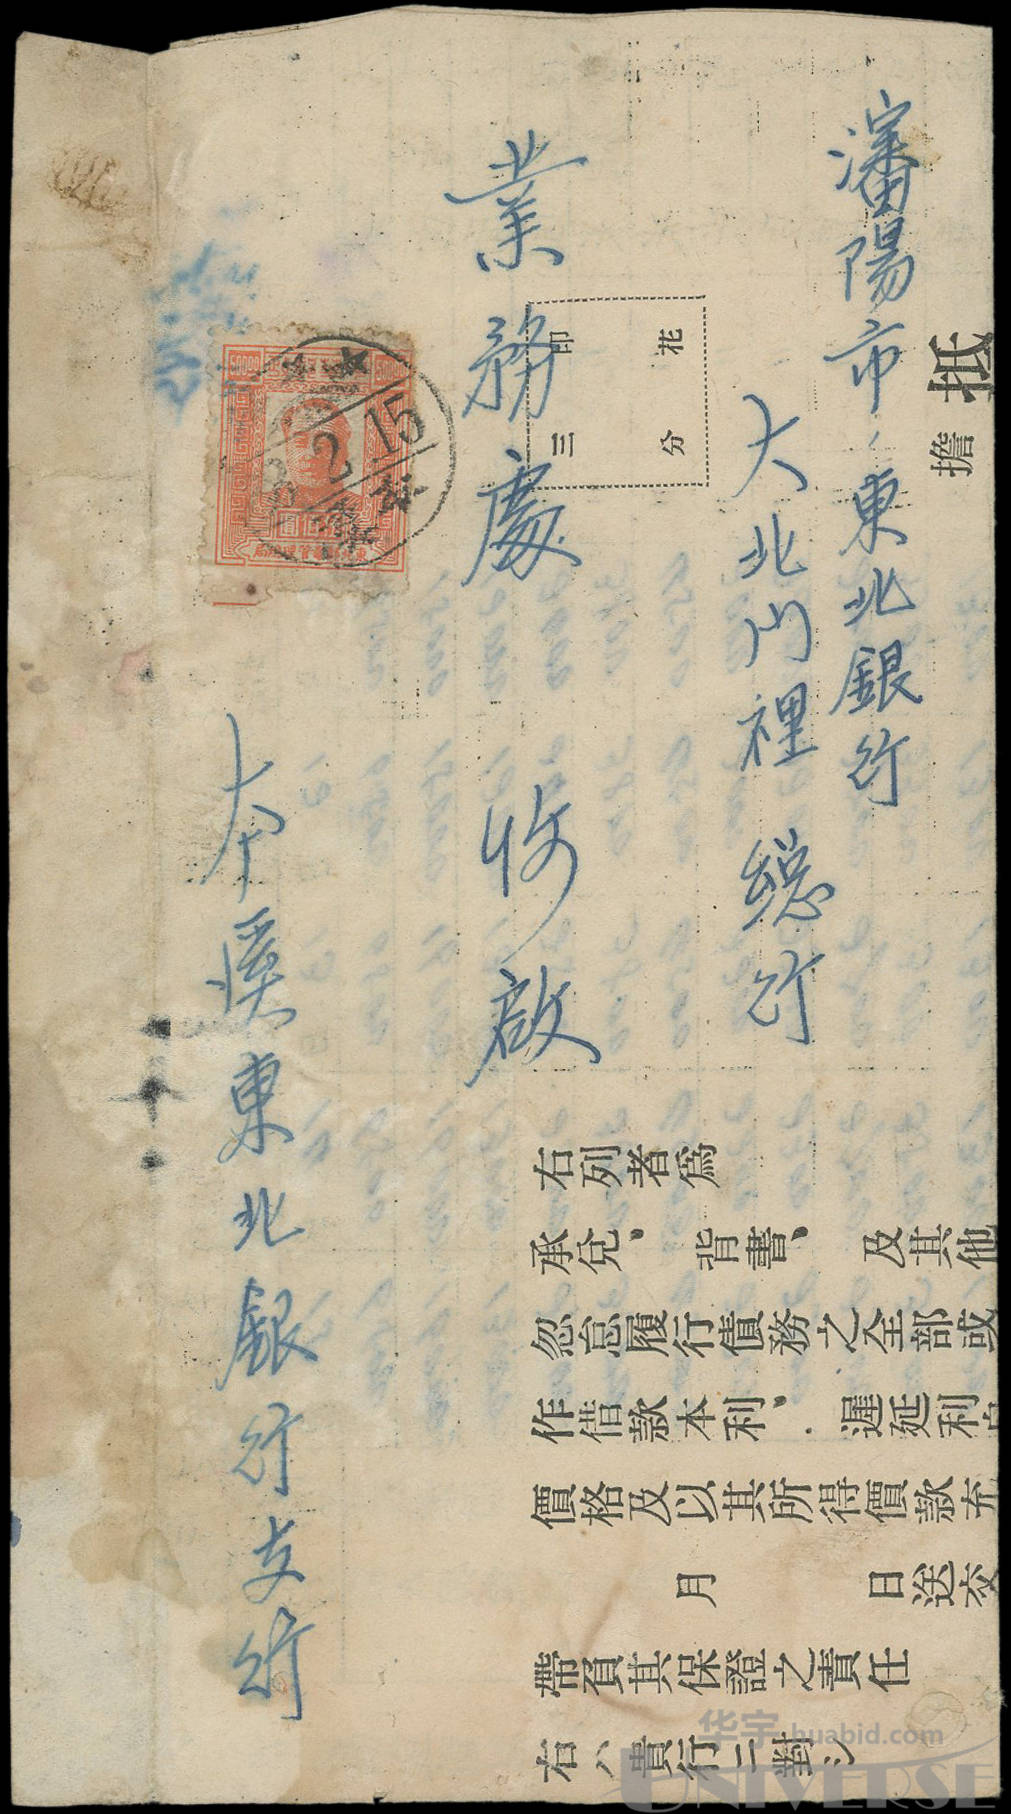 瀋陽市、東北銀行
大北门裡 総行
業務處 收啟
本溪東北銀行支行
抵
擔
印花
三分
50000
50000
伍佰圓
3 2 15
右列者爲
承兌、背書、及其他
忽怠履行債務之全部或
作借款本利、遲延利
價格及以其所得價款充
月 日送交
帶負其保證之責任
右ハ貴行ニ對シ
华宇 huabid.com
UNIVERSE